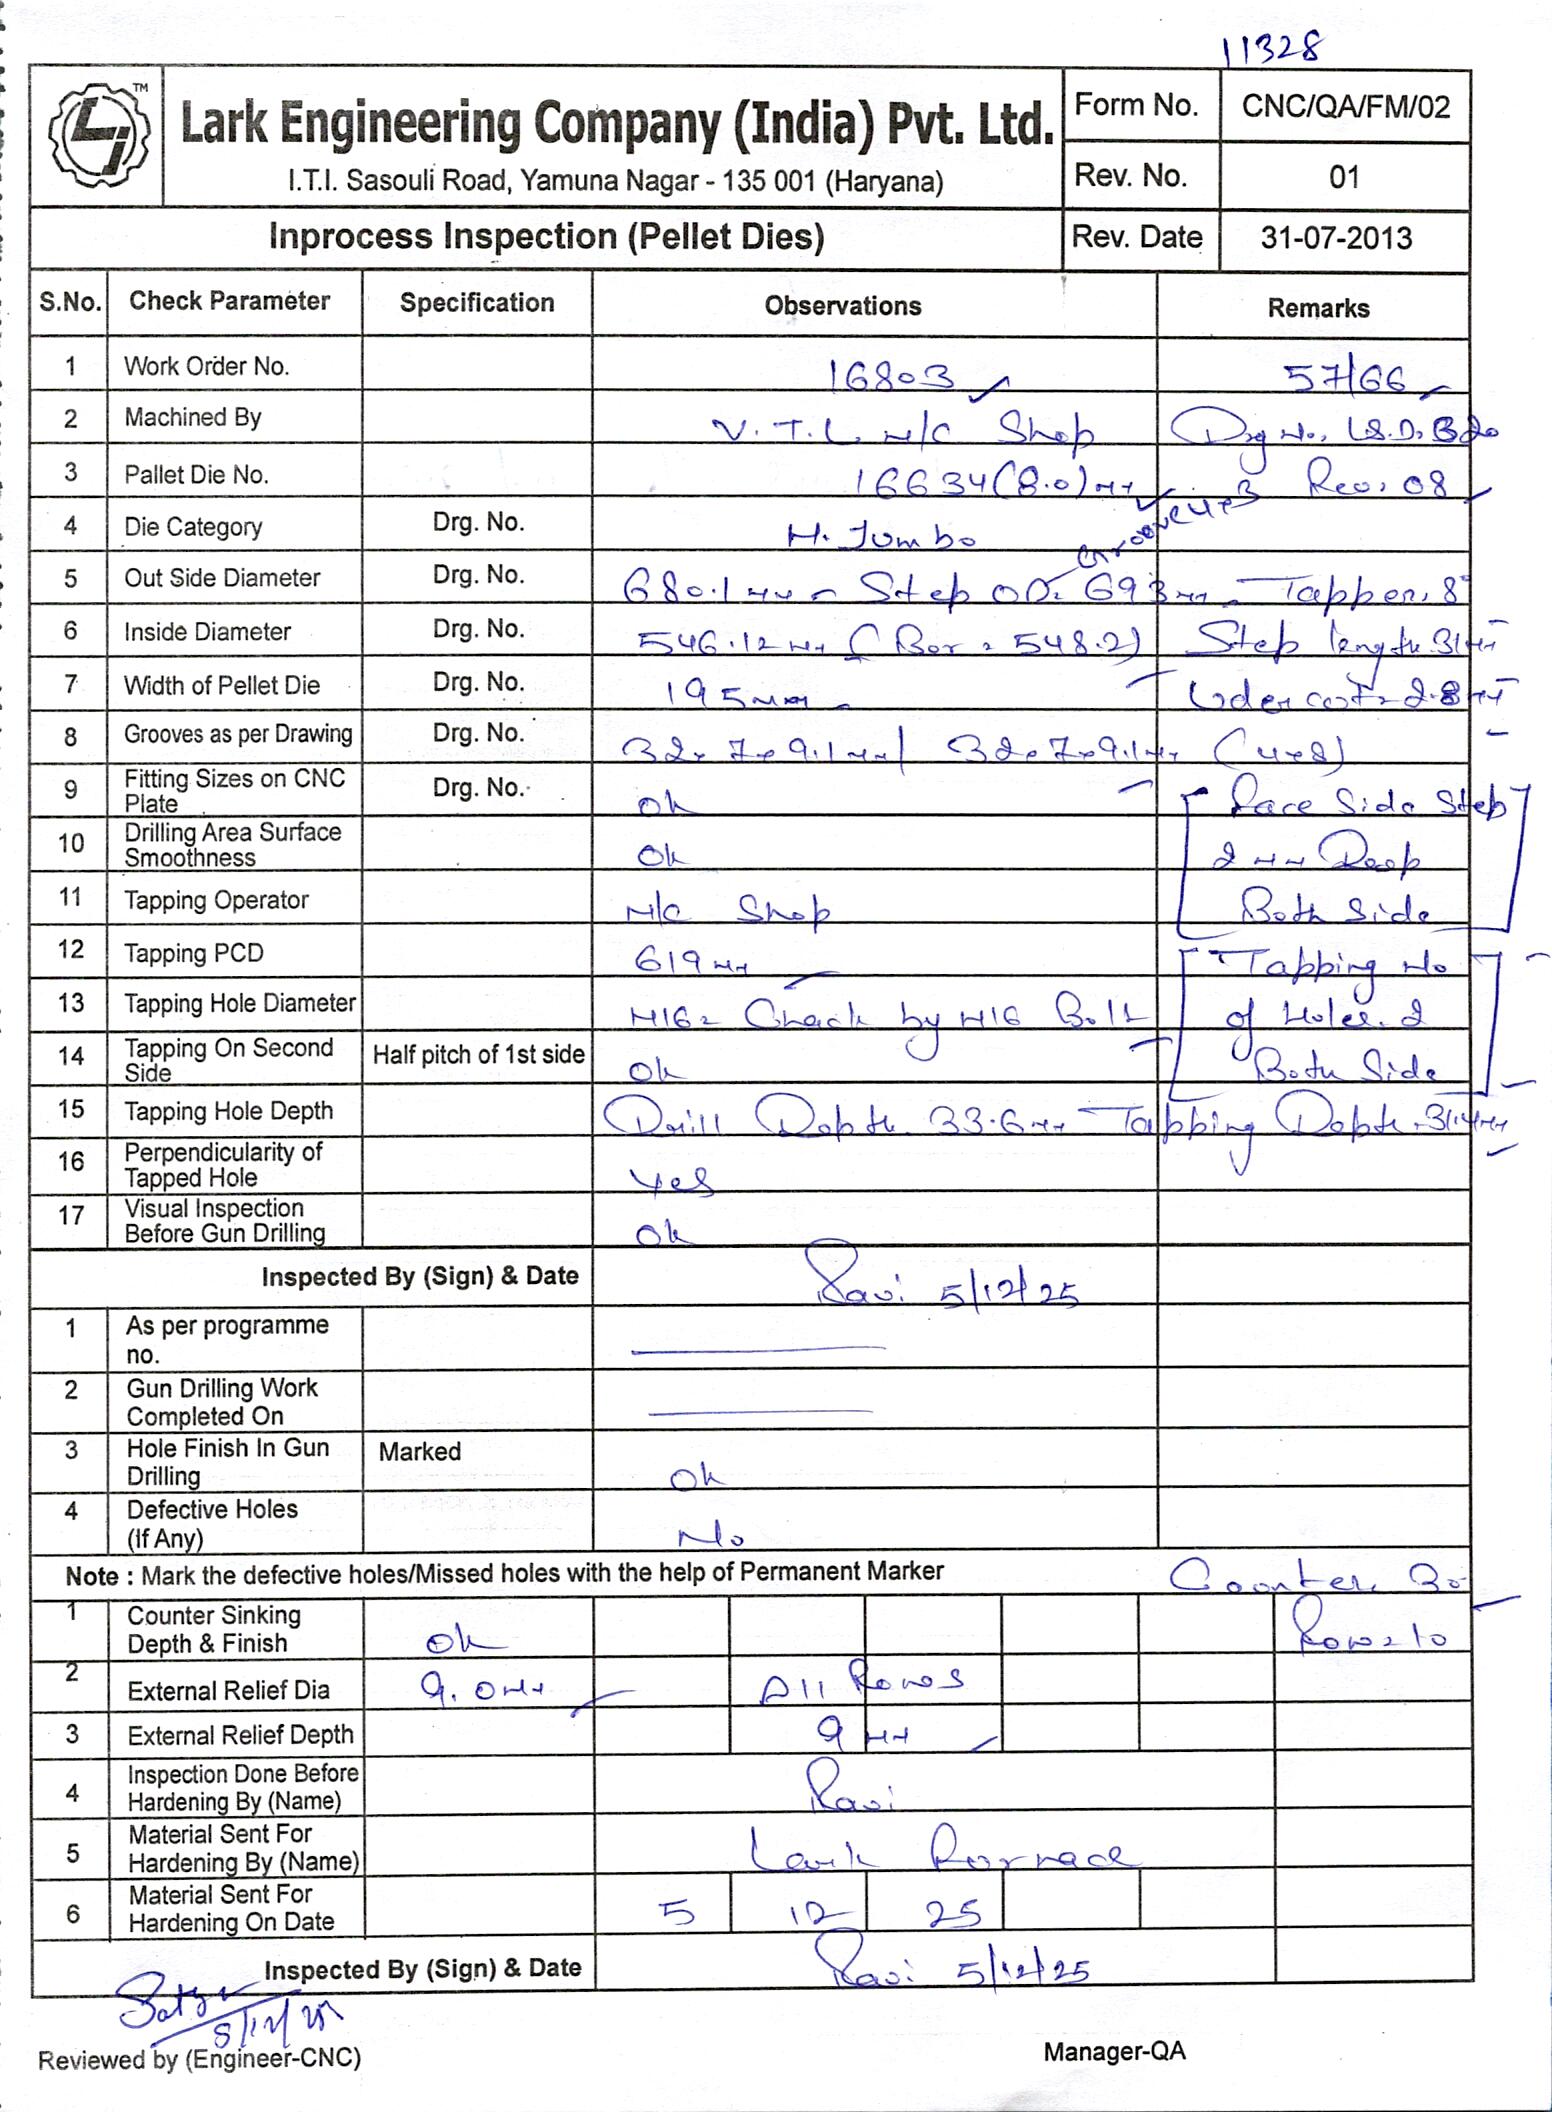 11328
TM
Lark Engineering Company (India) Pvt. Ltd.
I.T.I. Sasouli Road, Yamuna Nagar - 135 001 (Haryana)
Form No. CNC/QA/FM/02
Rev. No. 01
Inprocess Inspection (Pellet Dies) Rev. Date 31-07-2013
S.No. Check Parameter Specification Observations Remarks
1 Work Order No. 16803 57/66
2 Machined By V.T.L M/C Shop Drg No.
3 Pallet Die No. 16634 (8.0) mm Rev. 08
4 Die Category Drg. No. H. Jumbo
5 Out Side Diameter Drg. No. 680.1 mm - Step OD. 693 mm - Tapper. 8°
6 Inside Diameter Drg. No. 546.12 mm (Bor = 548.2) Step length. 31 mm
7 Width of Pellet Die Drg. No. 195 mm 2.8 mm
8 Grooves as per Drawing Drg. No. 32 x 7 x 9.1 mm / 32 x 7 x 9.1 mm (4x8)
9 Fitting Sizes on CNC Plate Drg. No. ok
Face Side Step
10 Drilling Area Surface Smoothness ok 2 mm Deep
11 Tapping Operator M/C Shop Both Side
12 Tapping PCD 619 mm Tapping No
13 Tapping Hole Diameter M16 = Check by M16 Bolt of Holes. 2
14 Tapping On Second Side Half pitch of 1st side ok Both Side
15 Tapping Hole Depth Drill Depth. 33.6 mm Tapping Depth. 31.4 mm
16 Perpendicularity of Tapped Hole Yes
17 Visual Inspection Before Gun Drilling ok
Inspected By (Sign) & Date Ravi 5/12/25
1 As per programme no.
2 Gun Drilling Work Completed On
3 Hole Finish In Gun Drilling Marked ok
4 Defective Holes (If Any) No
Note : Mark the defective holes/Missed holes with the help of Permanent Marker Counter. 30
1 Counter Sinking Depth & Finish ok Row = 10
2 External Relief Dia 9.0 mm All Rows
3 External Relief Depth 9 mm
4 Inspection Done Before Hardening By (Name) Ravi
5 Material Sent For Hardening By (Name) Lark Furnace
6 Material Sent For Hardening On Date 5 12 25
Inspected By (Sign) & Date Ravi 5/12/25
5/12/25
Reviewed by (Engineer-CNC) Manager-QA